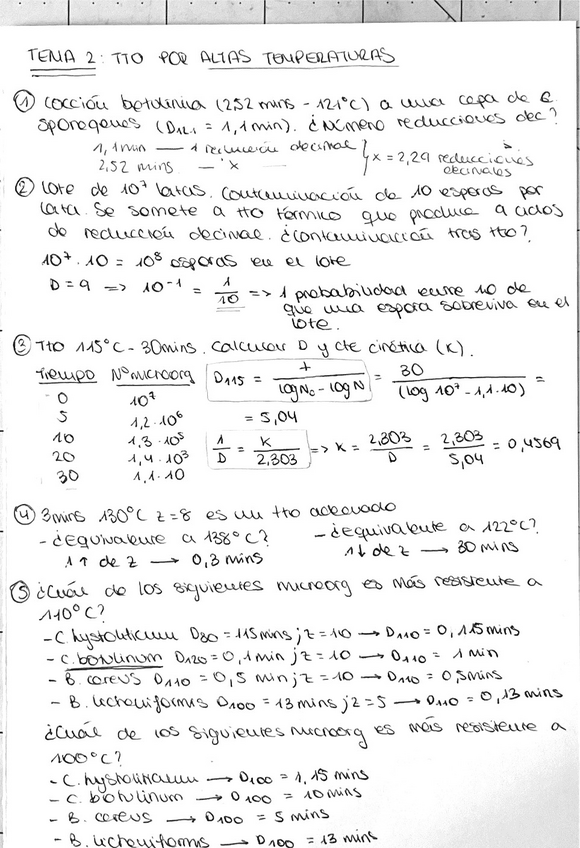 TEMA 2: TTO POR ALTAS TEMPERATURAS
① Cocción botulínica (2,52 mins - 121°C) a una cepa de C.
sporogenes (D121.1 = 1,1 min). ¿Número reducciones dec?
1,1 min — 1 reducción decimal
2,52 mins — x
x = 2,29 reducciones
decimales
② Lote de 10⁷ latas. Contaminación de 10 esporas por
lata. Se somete a tto térmico que produce 9 ciclos
de reducción decimal. ¿Contaminación tras tto?
10⁷ · 10 = 10⁸ esporas en el lote
D = 9 => 10⁻¹ = 1/10 => 1 probabilidad entre 10 de
que una espora sobreviva en el
lote.
③ Tto 115°C - 30mins. Calcular D y cte cinética (K).
Tiempo Nº microorg
0 10⁷
5 1,2·10⁶
10 1,3·10⁵
20 1,4·10³
30 1,1·10
D115 = t / (log N₀ - log N) = 30 / (log 10⁷ - 1,1·10) =
= 5,04
1/D = K/2,303 => K = 2,303/D = 2,303/5,04 = 0,4569
④ 3mins 130°C z=8 es un tto adecuado
- ¿equivalente a 138°C?
1 ↑ de z → 0,3 mins
- ¿equivalente a 122°C?
1 ↓ de z → 30 mins
⑤ ¿Cuál de los siguientes microorg es más resistente a
110°C?
- C. hystoliticum D80 = 115mins; z=10 → D110 = 0,115mins
- C. botulinum D120 = 0,1 min; z=10 → D110 = 1 min
- B. cereus D110 = 0,5 min; z=10 → D110 = 0,5mins
- B. licheniformis D100 = 13 mins; z=5 → D110 = 0,13 mins
¿Cuál de los siguientes microorg es más resistente a
100°C?
- C. hystoliticum → D100 = 1,15 mins
- C. botulinum → D100 = 10 mins
- B. cereus → D100 = 5 mins
- B. licheniformis → D100 = 13 mins